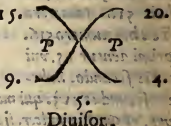 15. 20.
P P
9. 4.
5.
Diuiſor.